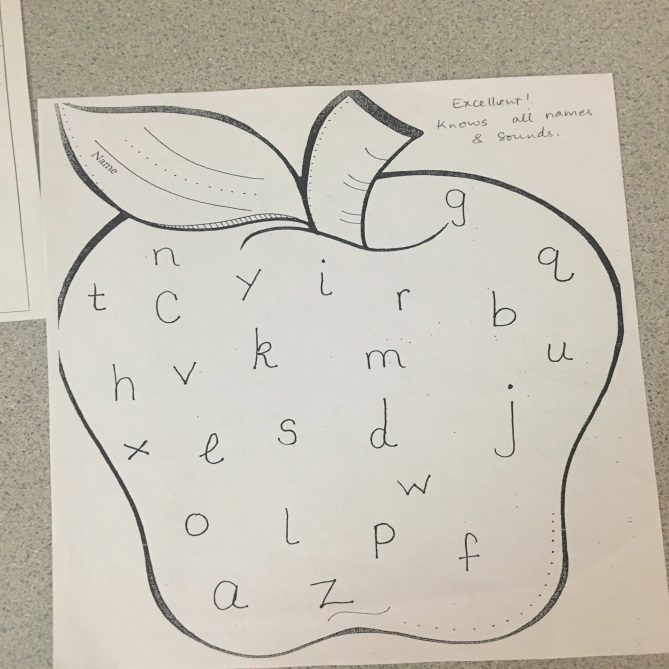 Excellent!
Knows all names
& Sounds.
Name
g
n y i q
t c r b
k m u
h v
x e s d j
w
o l p f
a z